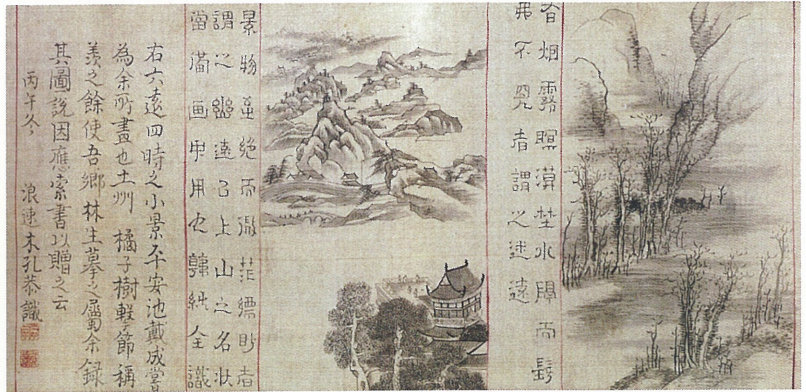 有烟霧暝漠埜水隔而髣
弗不見者謂之迷遠
景物至絶而微茫縹眇者
謂之幽遠已上山之名状
當備画中用也韓純全識
右六遠四時之小景平安池戴成嘗
為余所畫也土州橘子樹軽節稱
羨之餘使吾郷林生摹之屬余録
其圖説因應索書以贈之云
丙午冬 浪速木孔恭識